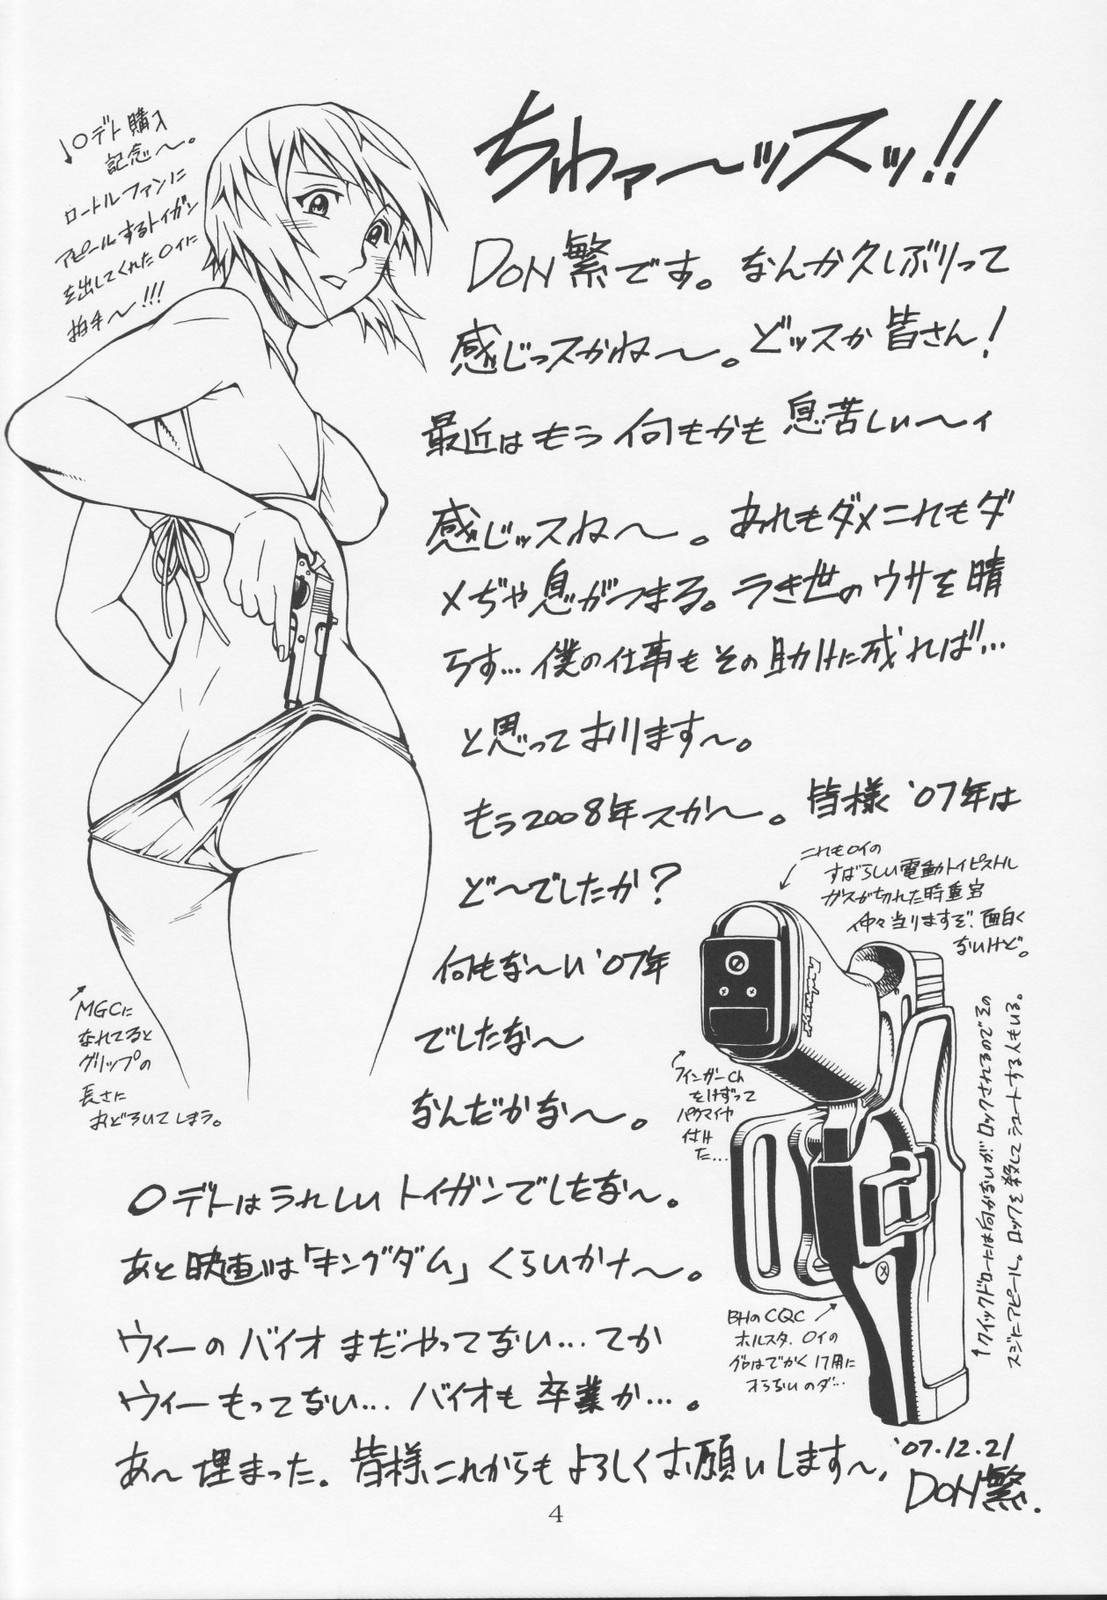 ちわァ〜ッスッ!!
DON繁です。なんか久しぶりって
感じっスかね〜。どッスか皆さん!
最近はもう何もかも息苦しい〜ィ
感じッスね〜。あれもダメこれもダ
メぢゃ息がつまる。うき世のウサを晴
らす…僕の仕事もその助けに成れば…
と思っております〜。
もう2008年スか〜。皆様'07年は
ど〜でしたか?
何もな〜い'07年
でしたな〜
なんだかな〜。
○デトはうれしいトイガンでしたな〜。
あと映画は「キングダム」くらいかナ〜。
ウィーのバイオまだやってない…てか
ウィーもってない…バイオも卒業か…。
あ〜埋まった。皆様これからもよろしくお願いします〜、
'07.12.21
DON繁.
↓○デト購入
記念〜。
ロートルファンに
アピールするトイガン
を出してくれた○イに
拍手〜!!!
↗MGCに
なれてると
グリップの
長さに
おどろいてしまう。
これも○イの
すばらしい電動トイピストル
ガスが切れた時重宝
仲々当りますぞ、面白く
ないけど。
フィンガーCh
をはずって
パクマイヤ
付けた…
BHのCQC
ホルスタ、○イの
グロはでかく17用に
オうないのダ…
↑クイックドロートには向かないがロックされるのでその
スジにアピール。ロックを殺してシュートする人もいる。
4